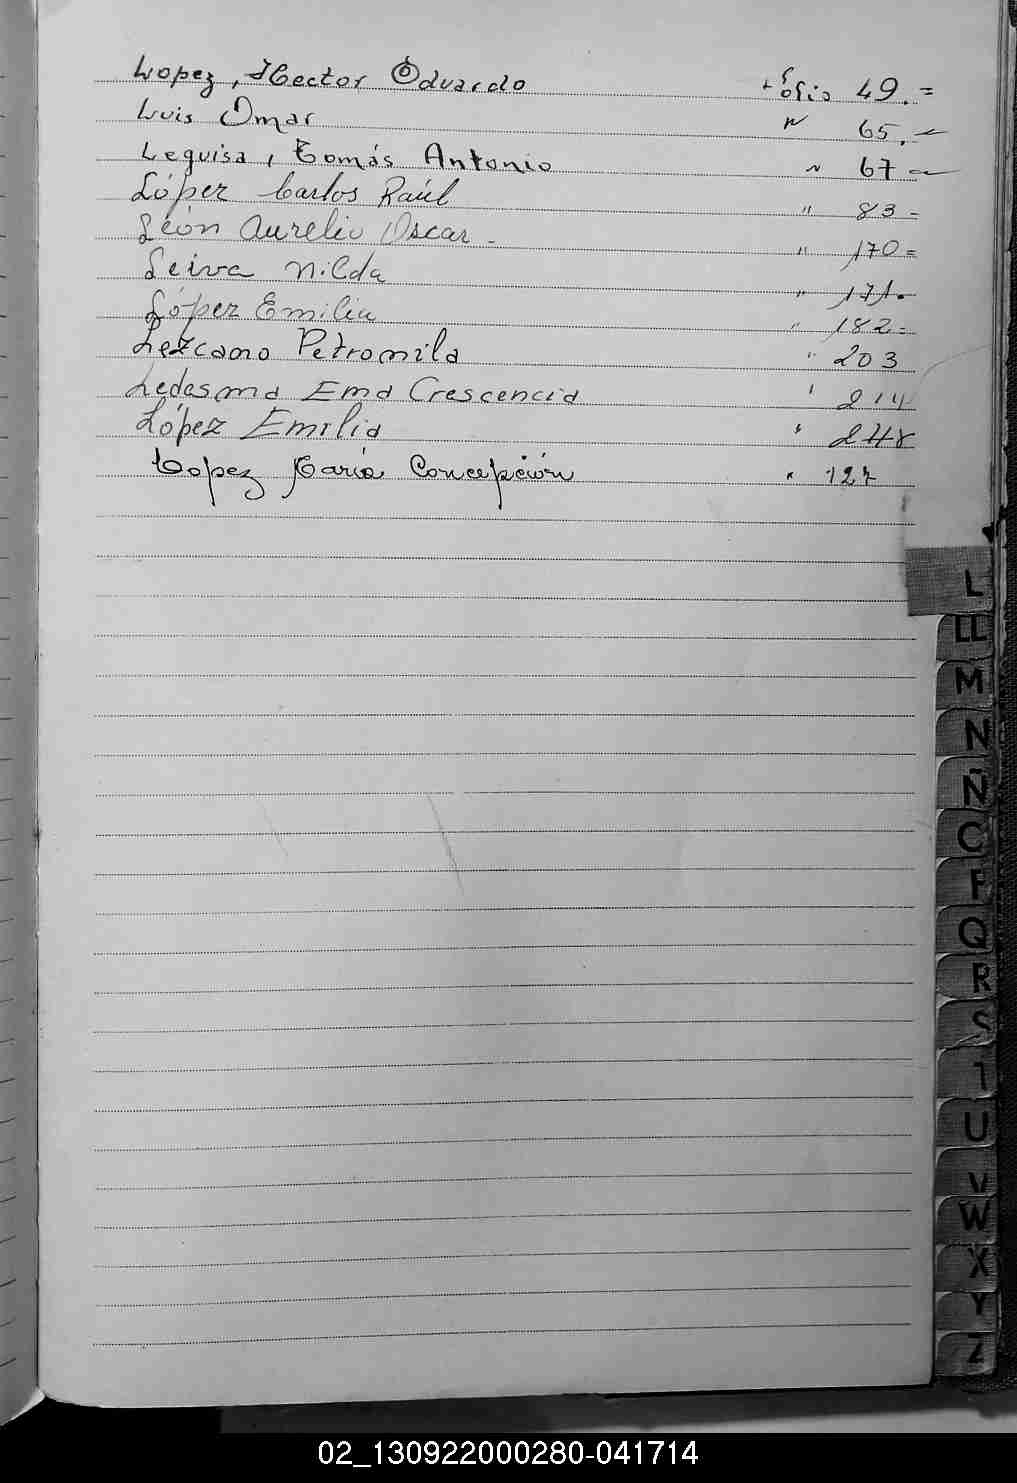 Lopez, Hector Eduardo Folio 49.=
Luis Omar " 65.-
Leguisa, Tomás Antonio " 67-
López Carlos Raúl " 83-
León Aurelio Oscar - " 170=
Leiva Nilda " 171.
López Emilia " 182=
Lezcano Petromila " 203
Ledesma Ema Crescencia " 214
López Emilia " 248
Lopez María Concepción " 127
L
LL
M
N
Ñ
O
P
Q
R
S
T
U
V
W
X
Y
Z
02_130922000280-041714